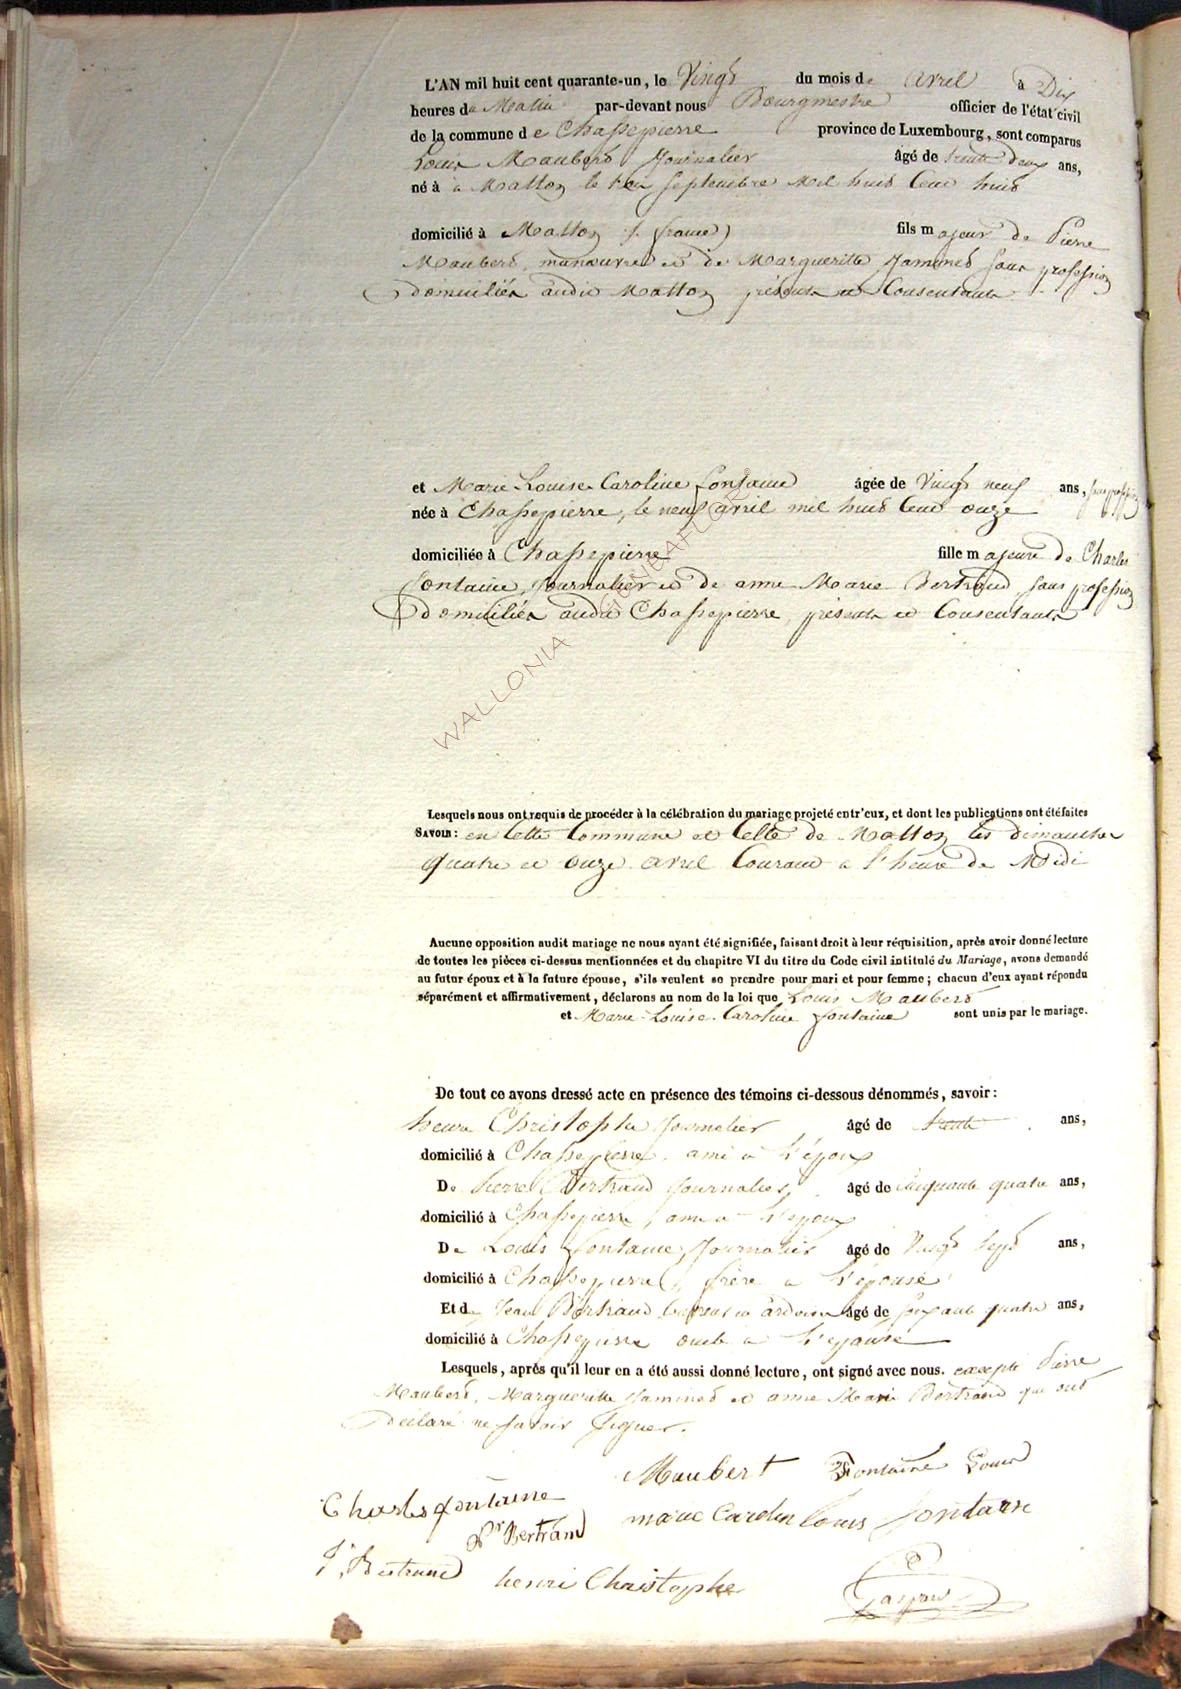 L'AN mil huit cent quarante-un, le Vingt du mois de avril à Dix
heures du Matin par-devant nous Bourgmestre officier de l'état civil
de la commune de Chassepierre province de Luxembourg, sont comparus
Louis Maubert Journalier âgé de trente deux ans,
né à a Matton le septembre Mil huit Cent huit
domicilié à Matton (france) fils majeur de Pierre
Maubert, manœuvre et de Margueritte Jaminet sans profession
Domiciliés audit Matton présents et Consentants
et Marie Louise Caroline Fontaine âgée de Vingt neuf ans, sans profession
née à Chassepierre, le neuf avril mil huit Cent onze
domiciliée à Chassepierre fille majeure de Charles
fontaine, Journalier et de anne Marie Bertrand, sans profession
Domiciliés audit Chassepierre, présents et Consentants
WALLONIA GENEAFLOR ©
Lesquels nous ont requis de procéder à la célébration du mariage projeté entr'eux, et dont les publications ont été faites
SAVOIR : en Cette Commune et Celle de Matton les dimanches
quatre et onze avril Courant a l'heure de Midi
Aucune opposition audit mariage ne nous ayant été signifiée, faisant droit à leur réquisition, après avoir donné lecture
de toutes les pièces ci-dessus mentionnées et du chapitre VI du titre du Code civil intitulé du Mariage, avons demandé
au futur époux et à la future épouse, s'ils veulent se prendre pour mari et pour femme ; chacun d'eux ayant répondu
séparément et affirmativement, déclarons au nom de la loi que Louis Maubert
et Marie Louise Caroline fontaine sont unis par le mariage.
De tout ce avons dressé acte en présence des témoins ci-dessous dénommés, savoir :
henri Christophe Journalier âgé de trente ans,
domicilié à Chassepierre, ami à l'époux
De pierre Bertrand Journalier, âgé de Cinquante quatre ans,
domicilié à Chassepierre, ami a l'époux
De Louis fontaine, Journalier âgé de Vingt Sept ans,
domicilié à Chassepierre, frère a l'épouse
Et de Jean Bertrand en ardoise âgé de Soixante quatre ans,
domicilié à Chassepierre oncle a l'épouse
Lesquels, après qu'il leur en a été aussi donné lecture, ont signé avec nous. excepté Pierre
Maubert, Margueritte Jaminet et anne Marie Bertrand qui ont
Déclaré ne savoir Signer.
Maubert Fontaine Louis
Charles fontaine
marie Carolin louis fontaine
Bertrand
J. Bertrand henri Christophe
Gaspard